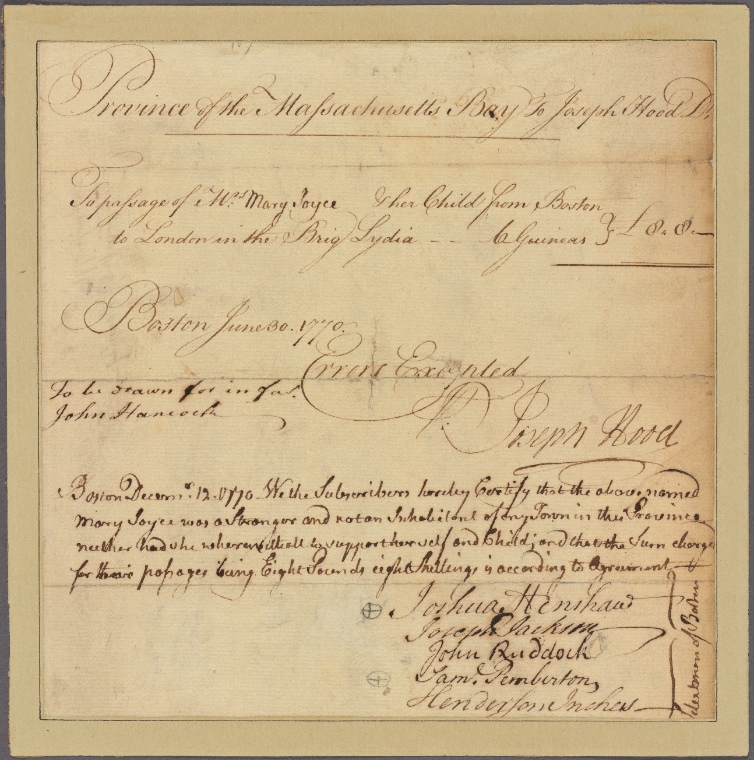 Province of the Massachusetts Bay To Joseph Hood Dr.
To passage of Mrs Mary Joyce & her Child from Boston
to London in the Brig Lydia - - 6 Guineas } £ 8. 8. -
Boston June 30. 1770.
Errors Excepted
To be drawn for in fav.
John Hancock
Pr. Joseph Hood
Boston Decem.r 12. 1770 - We the Subscribers hereby Certify that the above named
Mary Joyce was a Stranger and not an Inhabitant of any Town in this Province
neither had she wherewithall to support herself and Child; and that the Sum charged
for their passages being Eight Pounds eight Shillings is according to Agreement
Joshua Henshaw
Joseph Jackson
John Ruddock
Saml. Pemberton
Henderson Inches
Selectmen of Boston